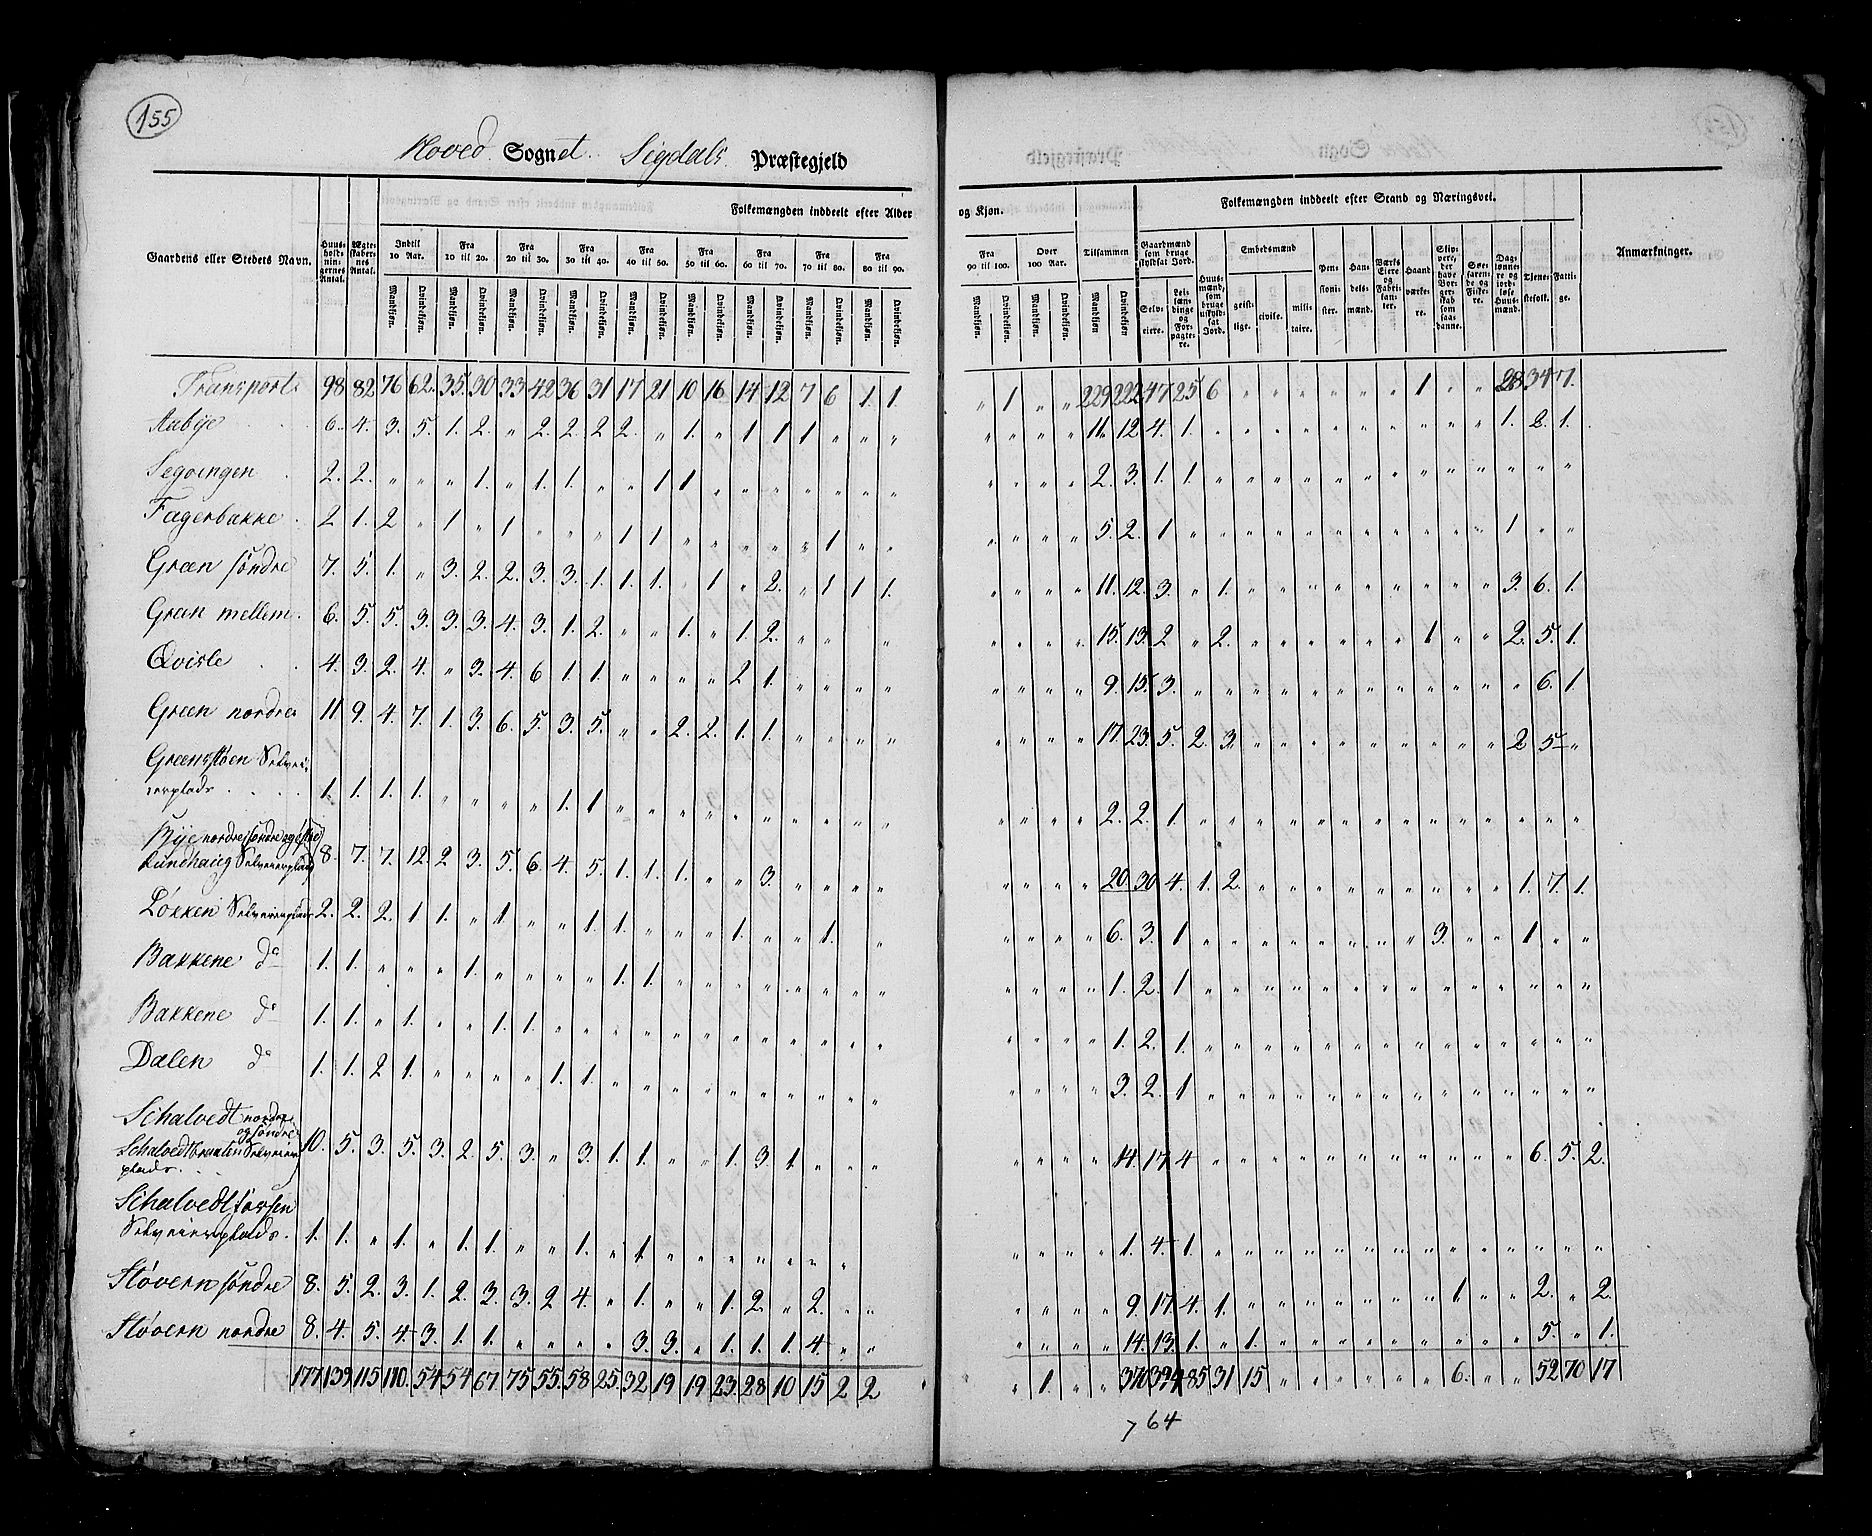 155
Hoved Sognet Sigdals Præstegjeld
Præstegjeld
Sogn
Gaardens eller Stedets Navn.
Huus-holdnin-gernes Antal.
Ægte-skaber-nes Antal.
Folkemængden inddeelt efter Alder
og Kjøn.
Indtil 10 Aar. Fra 10 til 20. Fra 20 til 30. Fra 30 til 40. Fra 40 til 50. Fra 50 til 60. Fra 60 til 70. Fra 70 til 80. Fra 80 til 90. Fra 90 til 100. Over 100 Aar. Tilsammen
Mandkjøn. Qvindekjøn.
Folkemængden inddeelt efter Stand og Næringsvei.
Gaardmænd som bruge skyldsat Jord.
Selv-eiere. Lei-læn-dinge og For-pagte-re.
Huus-mænd, som bruge uskyld-sat Jord.
Embedsmænd
geist-lige. civile. mili-taire.
Pen-sioni-ster. Han-dels-mænd. Værks Eiere og Fabri-kan-ter. Haand-værke-re. Skip-pere, der have Bor-ger-skab som saa-danne. Søe-faren-de og Fiske-re. Dag-lønne-re og jord-løse Huus-mænd. Tjene-stefolk. Fatti-ge.
Anmærkninger.
Transport 98 82 76 62 35 30 33 42 36 31 17 21 10 16 14 12 7 6 1 1 " 1 " " 229 222 47 25 6 " " " " " " 1 " " 28 34 7.
Aabye 6. 4. 3. 5. 1. 2. " 2. 2. 2 2. " 1. " 1 1 1 " " " " " " " 11. 12. 4. 1. " " " " " " " " " " 1. 2. 1.
Segvingen 2. 2. " " " 1. " 1. 1. " " 1 1 " " " " " " " " " " " 2. 3. 1. 1. " " " " " " " " " " " " "
Fagerbakke 2 1. 2 " 1 " 1 " " " 1 1 " " " " " 1 " " " " " " 5. 2. 1 " " " " " " " " " " " 1 " "
Green søndre 7. 5. 1. " 3. 2. 2. 3. 3. 1. 1. 1. " 1 " 2. " 1 1 1 " " " " 11. 12. 3. " 1. " " " " " " " " " 3. 6. 1.
Green mellem 6. 5. 5. 3. 3. 3. 4. 3. 1. 2. " " 1. " 1. 2. " " " " " " " 15. 13. 2 " 2. " " " " " " 1 " " 2. 5. 1.
Qvisle 4. 3. 2. 4. " 3. 4. 6 1. 1. " " " " 2 1. " " " " " " " " 9. 15. 3. " " " " " " " " " " " " 6. 1.
Green nordre 11 9. 4. 7. 1. 3. 6. 5. 3. 5. " " 2. 2. 1. 1. " " " " " " " " 17. 23. 5. 2. 3. " " " " " " " " " 2 5 "
Greensstøen Selvei-
erplads 1. 1. 1. 1. " " " " 1. 1 " " " " " " " " " " " " " " 2. 2. 1 " " " " " " " " " " " " " "
Bye nordre, søndre og østre
Lundhaug Selveierplads 8. 7. 7. 12 2 3. 5. 6. 4. 5. 1. 1. 1. " " 3. " " " " " " " " 20. 30. 4. 1. 2. " " " " " " " " " 1. 7. 1.
Løkken Selveierplads 2. 2. 2. 1 1. " 1. " " 1. 1. " " " 1. " " 1. " " " " " 6. 3. 1 " " " " " " " " 3. " " 1 " "
Bakkene do 1. 1. " " " 1. " " " " 1. 1. " " " " " " " " " " " " 1. 2. 1 " " " " " " " " " " " " " "
Bakkene do 1. 1. " 1. " " 1. 1. " " " " " " " " " " " " " " " " 1. 2. 1. " " " " " " " " " " " " " "
Dalen do 1. 1. 2 1. " " " " 1. 1. " " " " " " " " " " " " " " 3. 2. 1 " " " " " " " " " " " " " "
Schalvedt nordre
og søndre
Schalvedtbraaten Selveier
plads 10. 5. 3. 5. 3. 2. 5. 3. " 3. 1 1. " " 1. 3. 1. " " " " " " " 14. 17. 4 " " " " " " " " " " " 6. 5. 2.
Schalvedtfossen
Selveierplads. 1. 1. " 1. " 1. 1. " " 1. " 1 " " " " " " " " " " " 1. 4. 1. " " " " " " " " " " " " " "
Støvern søndre 8. 5. 2. 3. 1. 2. 3. 3. 2 4. " 1. " " 1. 2. " 2. " " " " " " 9. 17. 4. 1. " " " " " " " 1. " " 2. " 2.
Støvern nordre 8. 4. 5. 4. 3. 1. 1. " " " " 3. 3. " 1. 1. 1. 4. " " " " " " 14. 13. 1. " 1. " " " " " " " " " 5. " 1.
177 139 115 110. 54 54 67. 75 55. 58 25. 32 19 19 23. 28 10 15 2 2 " 1. " " 370 394 85 31 15 " " " " " " 6. " " 52 70 17
764